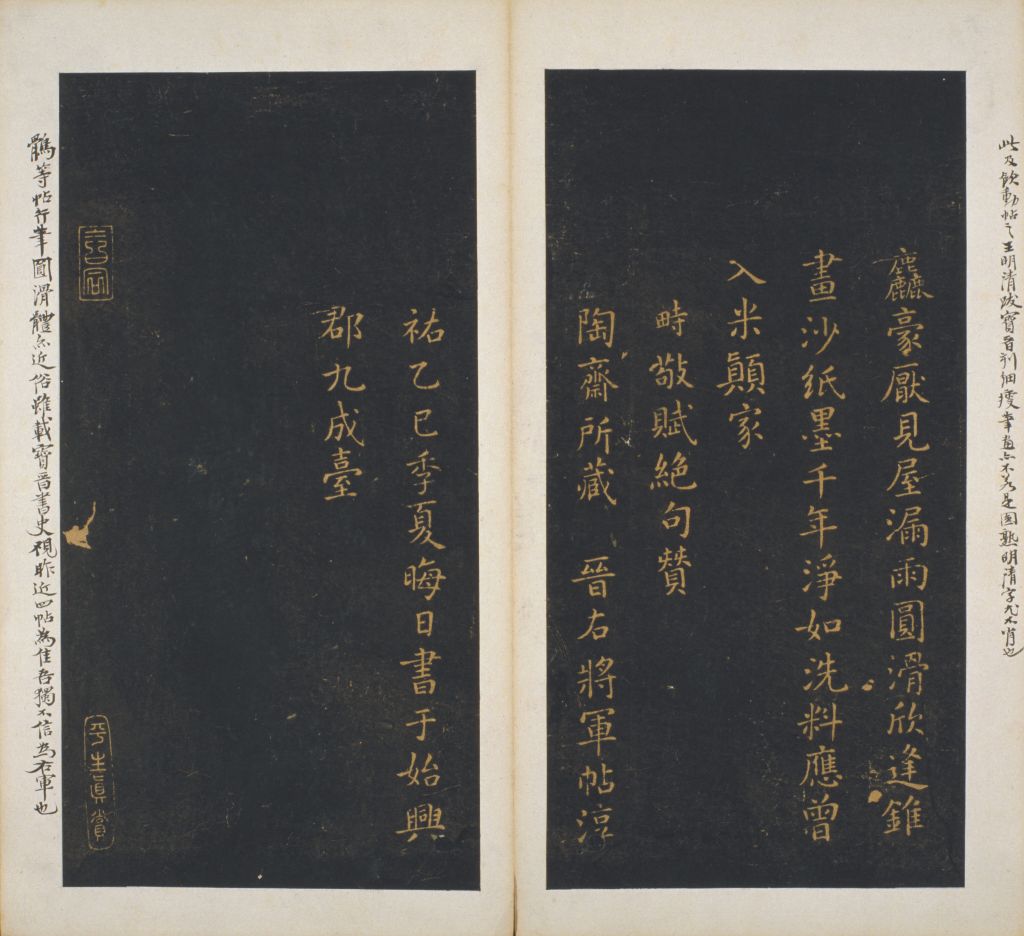 此及飲動帖之王明清跋寶晉刻細瘦筆畫亦不若是圓熟明清字尤不肖也
麤豪厭見屋漏雨圓滑欣逢錐
畫沙紙墨千年淨如洗料應曾
入米顛家
時敬賦絕句贊
陶齋所藏 晉右將軍帖淳
祐乙巳季夏晦日書于始興
郡九成臺
平生真賞
鵂等帖行筆圓滑體亦近俗雖載寶晉書史視昨近四帖為隹吾獨不信為右軍也